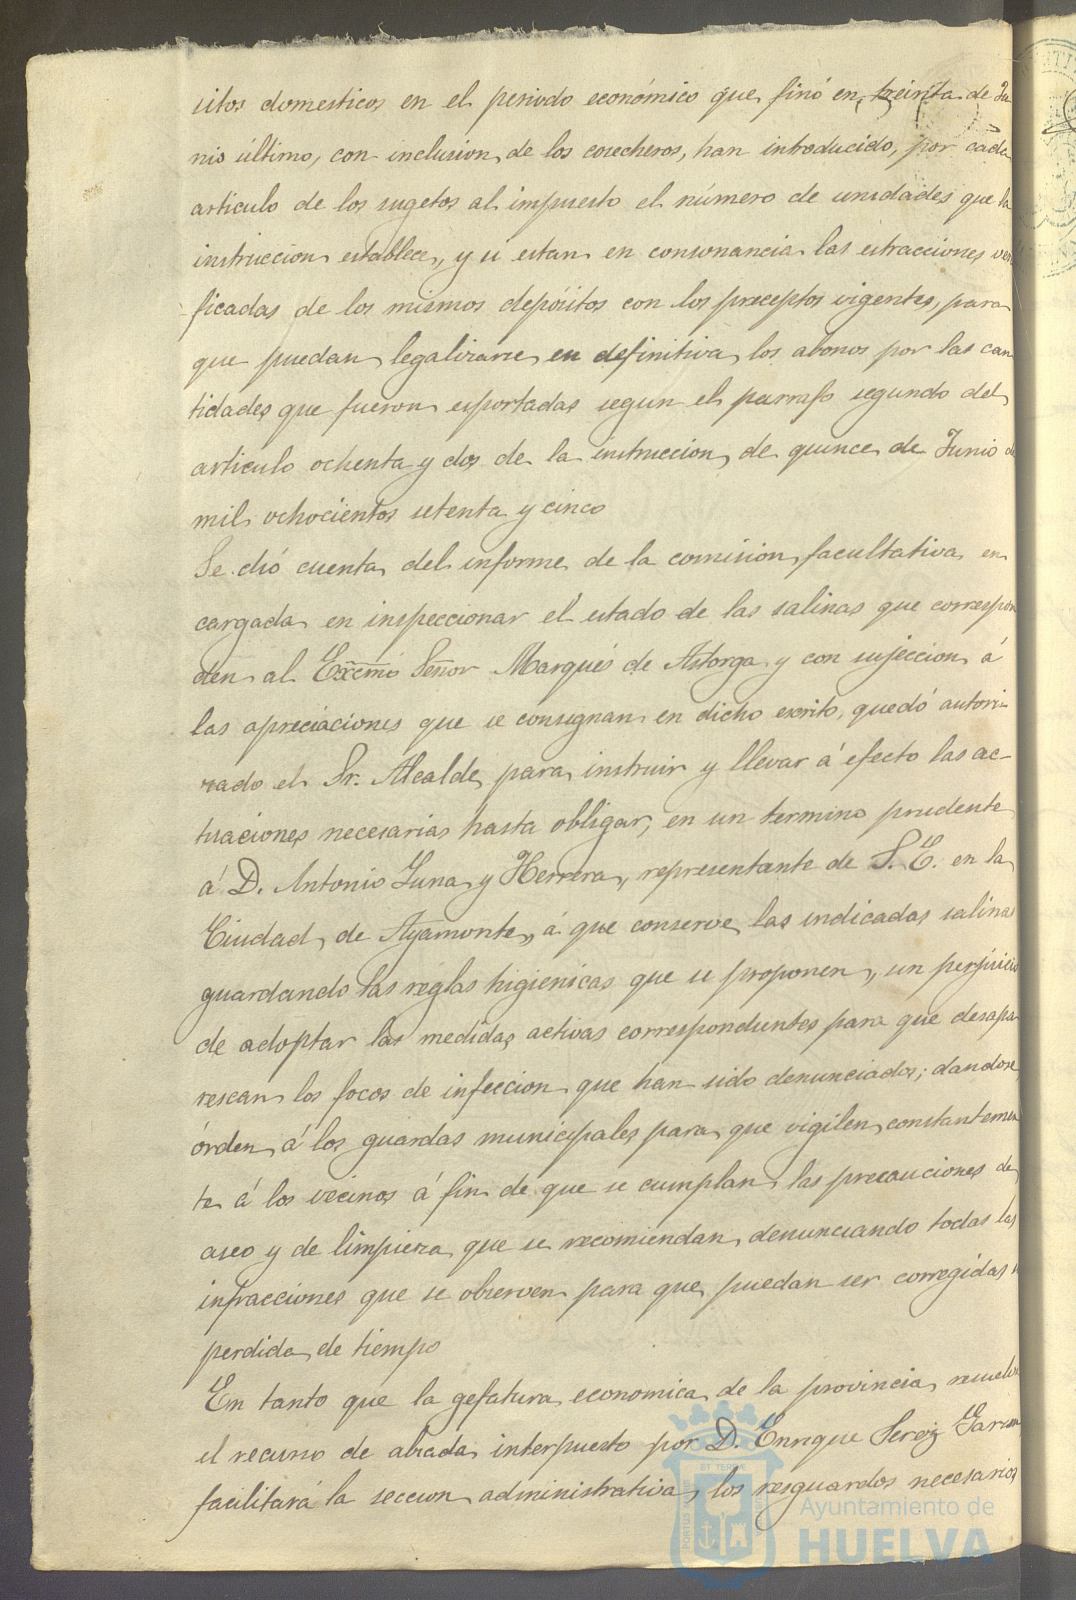 sitos domesticos en el periodo económico que finó en treinta de Ju
nio último, con inclusion de los cosecheros, han introducido, por cada
articulo de los sugetos al impuesto el número de unidades que la
instruccion establece, y si estan en consonancia las estracciones veri
ficadas de los mismos depósitos con los preceptos vigentes, para
que puedan legalizarse en definitiva los abonos por las can
tidades que fueron esportadas segun el parrafo segundo del
articulo ochenta y dos de la instruccion de quince de Junio de
mil ochocientos setenta y cinco
Se dió cuenta del informe de la comision facultativa en
cargada en inspeccionar el estado de las salinas que correspon
den al Excmo Señor Marqués de Astorga y con sujeccion á
las apreciaciones que se consignan en dicho escrito, quedó autori-
zado el Sr. Alcalde para instruir y llevar á efecto las ac-
tuaciones necesarias hasta obligar, en un termino prudente
á D. Antonio Luna y Herrera, representante de S. E. en la
Ciudad de Ayamonte, á que conserve las indicadas salinas
guardando las reglas higienicas que se proponen, sin perjuicio
de adoptar las medidas activas correspondientes para que desapa
rescan los focos de infeccion que han sido denunciados; dandose
órden á los guardas municipales para que vigilen constantemen
te á los vecinos á fin de que se cumplan las precauciones de
aseo y de limpieza que se recomiendan, denunciando todas las
infracciones que se observen para que puedan ser corregidas
perdida de tiempo
En tanto que la gefatura economica de la provincia resuelve
el recurso de alzada interpuesto por D. Enrique
facilitará la seccion administrativa los resguardos necesarios
Ayuntamiento de
HUELVA